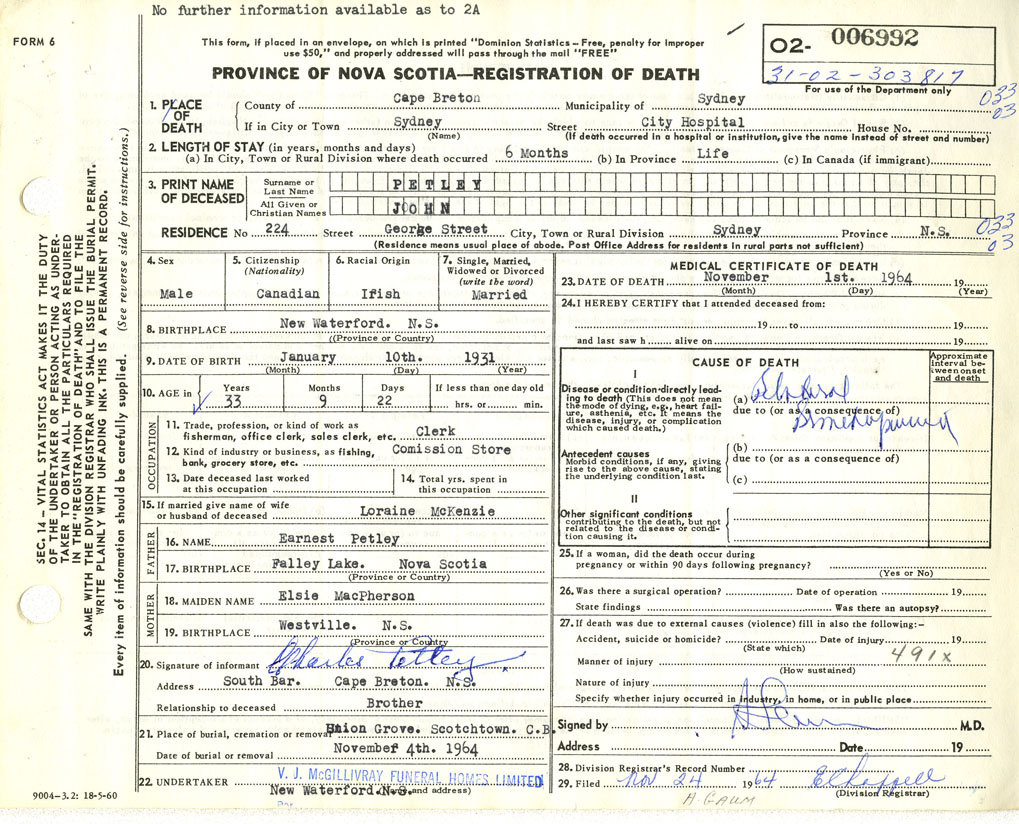 No further information available as to 2A
FORM 6
This form, if placed in an envelope, on which is printed "Dominion Statistics – Free, penalty for improper
use $50," and properly addressed will pass through the mail "FREE"
O2- 006992
31-02-303817
For use of the Department only
PROVINCE OF NOVA SCOTIA—REGISTRATION OF DEATH
033
03
1. PLACE OF DEATH
County of Cape Breton Municipality of Sydney
If in City or Town Sydney Street City Hospital House No.
(Name) (If death occurred in a hospital or institution, give the name instead of street and number)
2. LENGTH OF STAY (in years, months and days)
(a) In City, Town or Rural Division where death occurred 6 Months (b) In Province Life (c) In Canada (if immigrant)
3. PRINT NAME OF DECEASED
Surname or Last Name PETLEY
All Given or Christian Names JOHN
RESIDENCE No 224 Street George Street City, Town or Rural Division Sydney Province N.S.
033
03
(Residence means usual place of abode. Post Office Address for residents in rural parts not sufficient)
4. Sex Male
5. Citizenship (Nationality) Canadian
6. Racial Origin Ifish
7. Single, Married, Widowed or Divorced (write the word) Married
8. BIRTHPLACE New Waterford. N.S.
((Province or Country)
9. DATE OF BIRTH January 10th. 1931
(Month) (Day) (Year)
10. AGE in Years 33 Months 9 Days 22 If less than one day old hrs. or min.
OCCUPATION
11. Trade, profession, or kind of work as
fisherman, office clerk, sales clerk, etc. Clerk
12. Kind of industry or business, as fishing,
bank, grocery store, etc. Comission Store
13. Date deceased last worked
at this occupation
14. Total yrs. spent in
this occupation
15. If married give name of wife
or husband of deceased Loraine McKenzie
FATHER
16. NAME Earnest Petley
17. BIRTHPLACE Falley Lake. Nova Scotia
(Province or Country)
MOTHER
18. MAIDEN NAME Elsie MacPherson
19. BIRTHPLACE Westville. N.S.
(Province or Country)
20. Signature of informant Charles Petley
Address South Bar. Cape Breton. N.S.
Relationship to deceased Brother
21. Place of burial, cremation or removal Union Grove. Scotchtown. C.B.
Date of burial or removal November 4th. 1964
22. UNDERTAKER V. J. McGILLIVRAY FUNERAL HOMES LIMITED
New Waterford. N.S. and address)
MEDICAL CERTIFICATE OF DEATH
23. DATE OF DEATH November 1st. 1964 19
(Month) (Day) (Year)
24. I HEREBY CERTIFY that I attended deceased from:
19 to 19
and last saw h alive on 19
CAUSE OF DEATH
Approximate interval between onset and death
I
Disease or condition directly lead-
ing to death (This does not mean
the mode of dying, e.g., heart fail-
ure, asthenia, etc. It means the
disease, injury, or complication
which caused death.)
(a)
due to (or as a consequence of)
Antecedent causes
Morbid conditions, if any, giving
rise to the above cause, stating
the underlying condition last.
(b)
due to (or as a consequence of)
(c)
II
Other significant conditions
contributing to the death, but not
related to the disease or condi-
tion causing it.
25. If a woman, did the death occur during
pregnancy or within 90 days following pregnancy?
(Yes or No)
26. Was there a surgical operation? Date of operation 19
State findings Was there an autopsy?
27. If death was due to external causes (violence) fill in also the following:–
Accident, suicide or homicide? Date of injury 19
(State which)
491x
Manner of injury
(How sustained)
Nature of injury
Specify whether injury occurred in industry, in home, or in public place
Signed by M.D.
Address Date 19
28. Division Registrar's Record Number
29. Filed Nov 24 1964
(Division Registrar)
A. GAUM
SEC. 14 – VITAL STATISTICS ACT MAKES IT THE DUTY
OF THE UNDERTAKER OR PERSON ACTING AS UNDER-
TAKER TO OBTAIN ALL THE PARTICULARS REQUIRED
IN THE "REGISTRATION OF DEATH" AND TO FILE THE
SAME WITH THE DIVISION REGISTRAR WHO SHALL ISSUE THE BURIAL PERMIT.
WRITE PLAINLY WITH UNFADING INK. THIS IS A PERMANENT RECORD.
Every item of information should be carefully supplied. (See reverse side for instructions.)
9004-3.2: 18-5-60